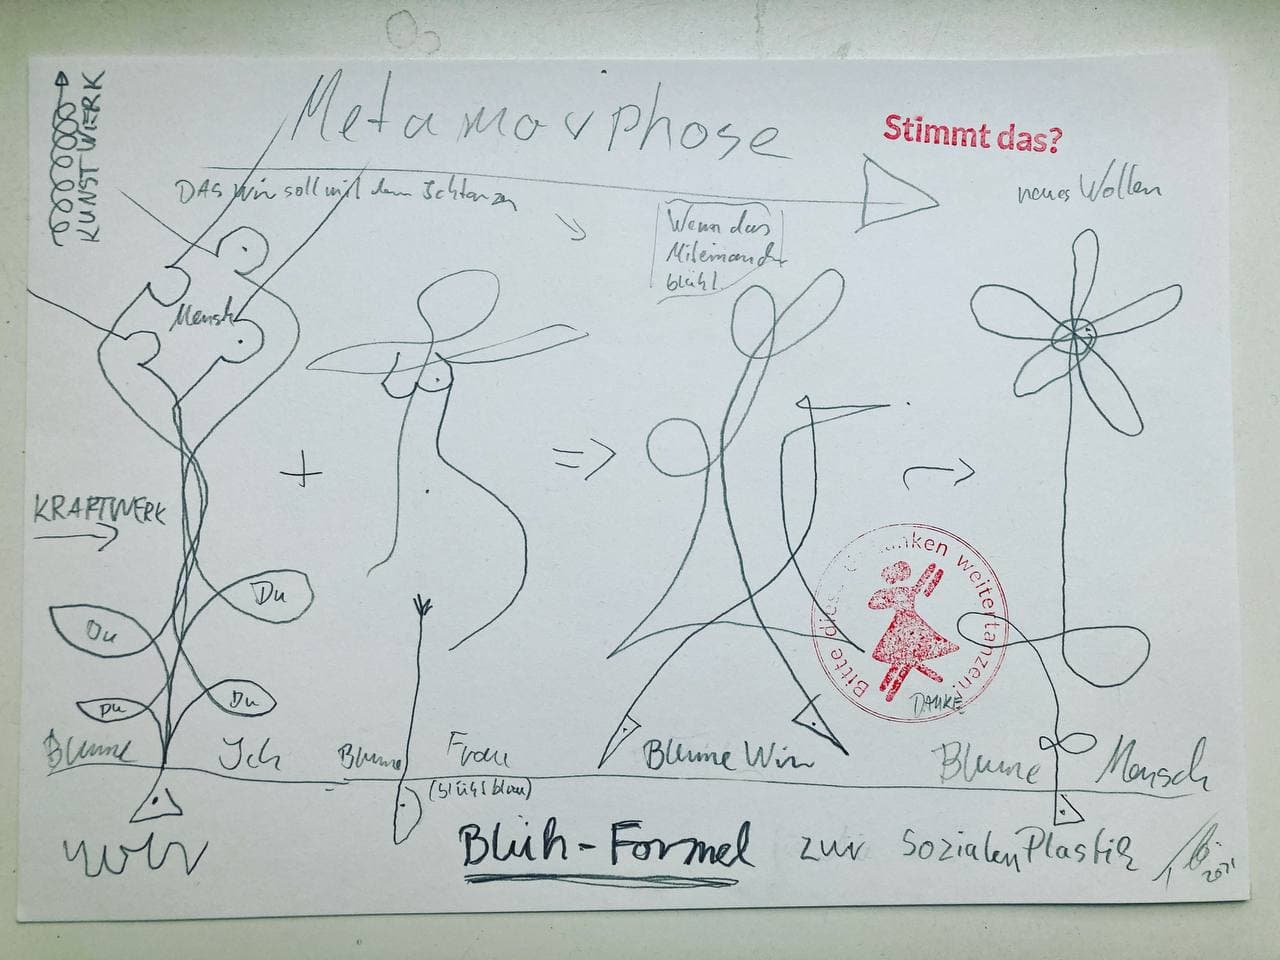 KUNSTWERK
Metamorphose
Stimmt das?
DAS Wir soll mit dem Ich tanzen
neues Wollen
Wenn das
Miteinander
blüht.
Mensch
+
=>
KRAFTWERK
Du
Du
Du
Du
Bitte diese Gedanken weitertanzen!
DANKE
Blume Ich
Blume Frau
(blüht blau)
Blume Wir
Blume Mensch
Wir
Blüh-Formel zur Sozialen Plastik
2021